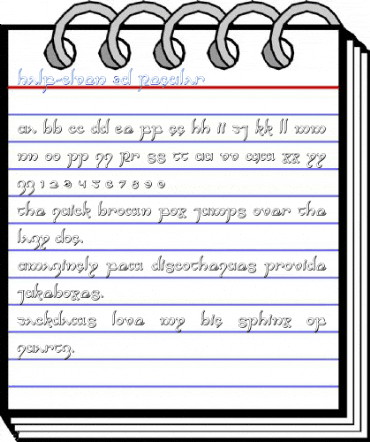 half-elven 3d regular
aa bb cc dd ee ff gg hh ii jj kk ll mm
nn oo pp qq rr ss tt uu vv ww xx yy
zz 1 2 3 4 5 6 7 8 9 0
the quick brown fox jumps over the
lazy dog.
amazingly few discotheques provide
jukeboxes.
jackdaws love my big sphinx of
quartz.